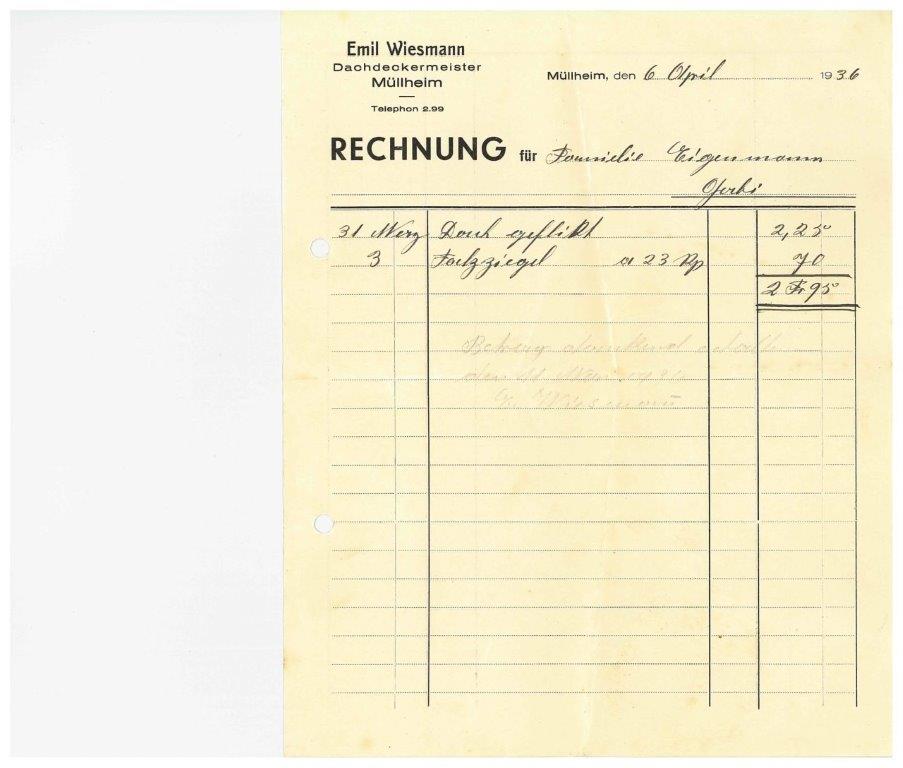 Emil Wiesmann
Dachdeckermeister
Müllheim
Telephon 2.99
Müllheim, den 6 April 1936
RECHNUNG für Familie Eigenmann
31 Merz Dach geflikt 2,25
3 Falzziegel a 23 Rp 70
2 Fr 95
Betrag dankend erhalten
den
Wiesmann